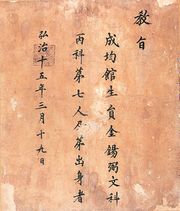 教旨
成均館生員金錫弼文科
丙科第七人及第出身者
弘治十五年三月十九日